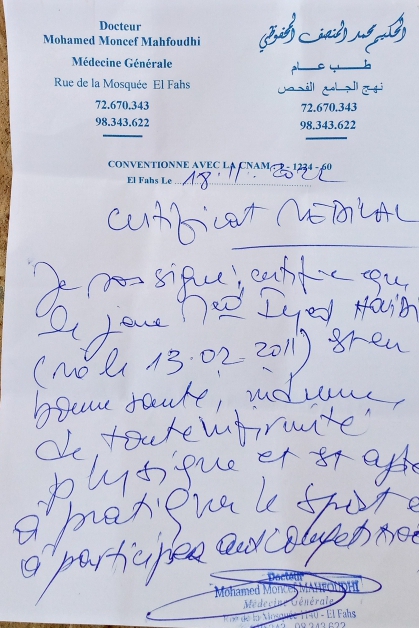 Docteur
Mohamed Moncef Mahfoudhi
Médecine Générale
Rue de la Mosquée El Fahs
72.670.343
98.343.622
الحكيم محمد المنصف المحفوظي
طب عام
نهج الجامع الفحص
72.670.343
98.343.622
CONVENTIONNE AVEC LA CNAM 2 - 1224 - 60
El Fahs Le 18.11.2022
Certificat MEDICAL
Je soussigné, certifie que
le jeune Med Iyed
(né le 13.02.2011) est en
bonne santé, indemne
de toute infirmité
physique et est
à pratiquer le sport
à participer aux
Docteur
Mohamed Moncef MAHFOUDHI
Médecine Générale
Rue de la Mosquée 1140 - El Fahs
98.343.622